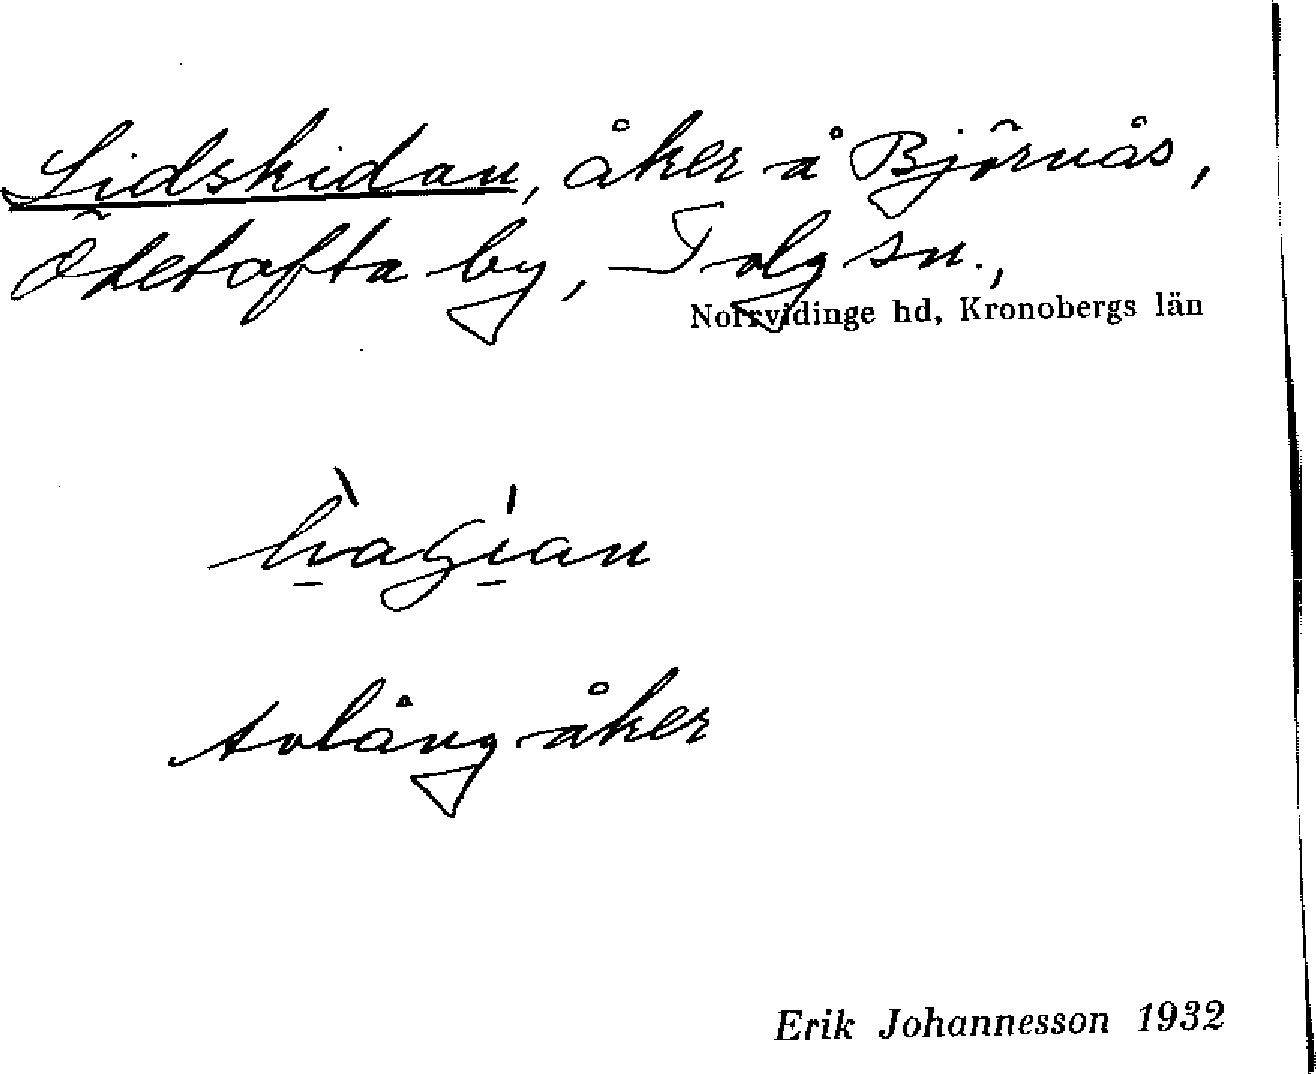 Lidskidan, åker å Björnås,
Ödetofta by, Tolg sn.,
Norrvidinge hd, Kronobergs län
avlång åker
Erik Johannesson 1932